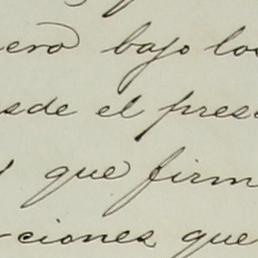 ero bajo los
sde el pres
que firm
ciones que